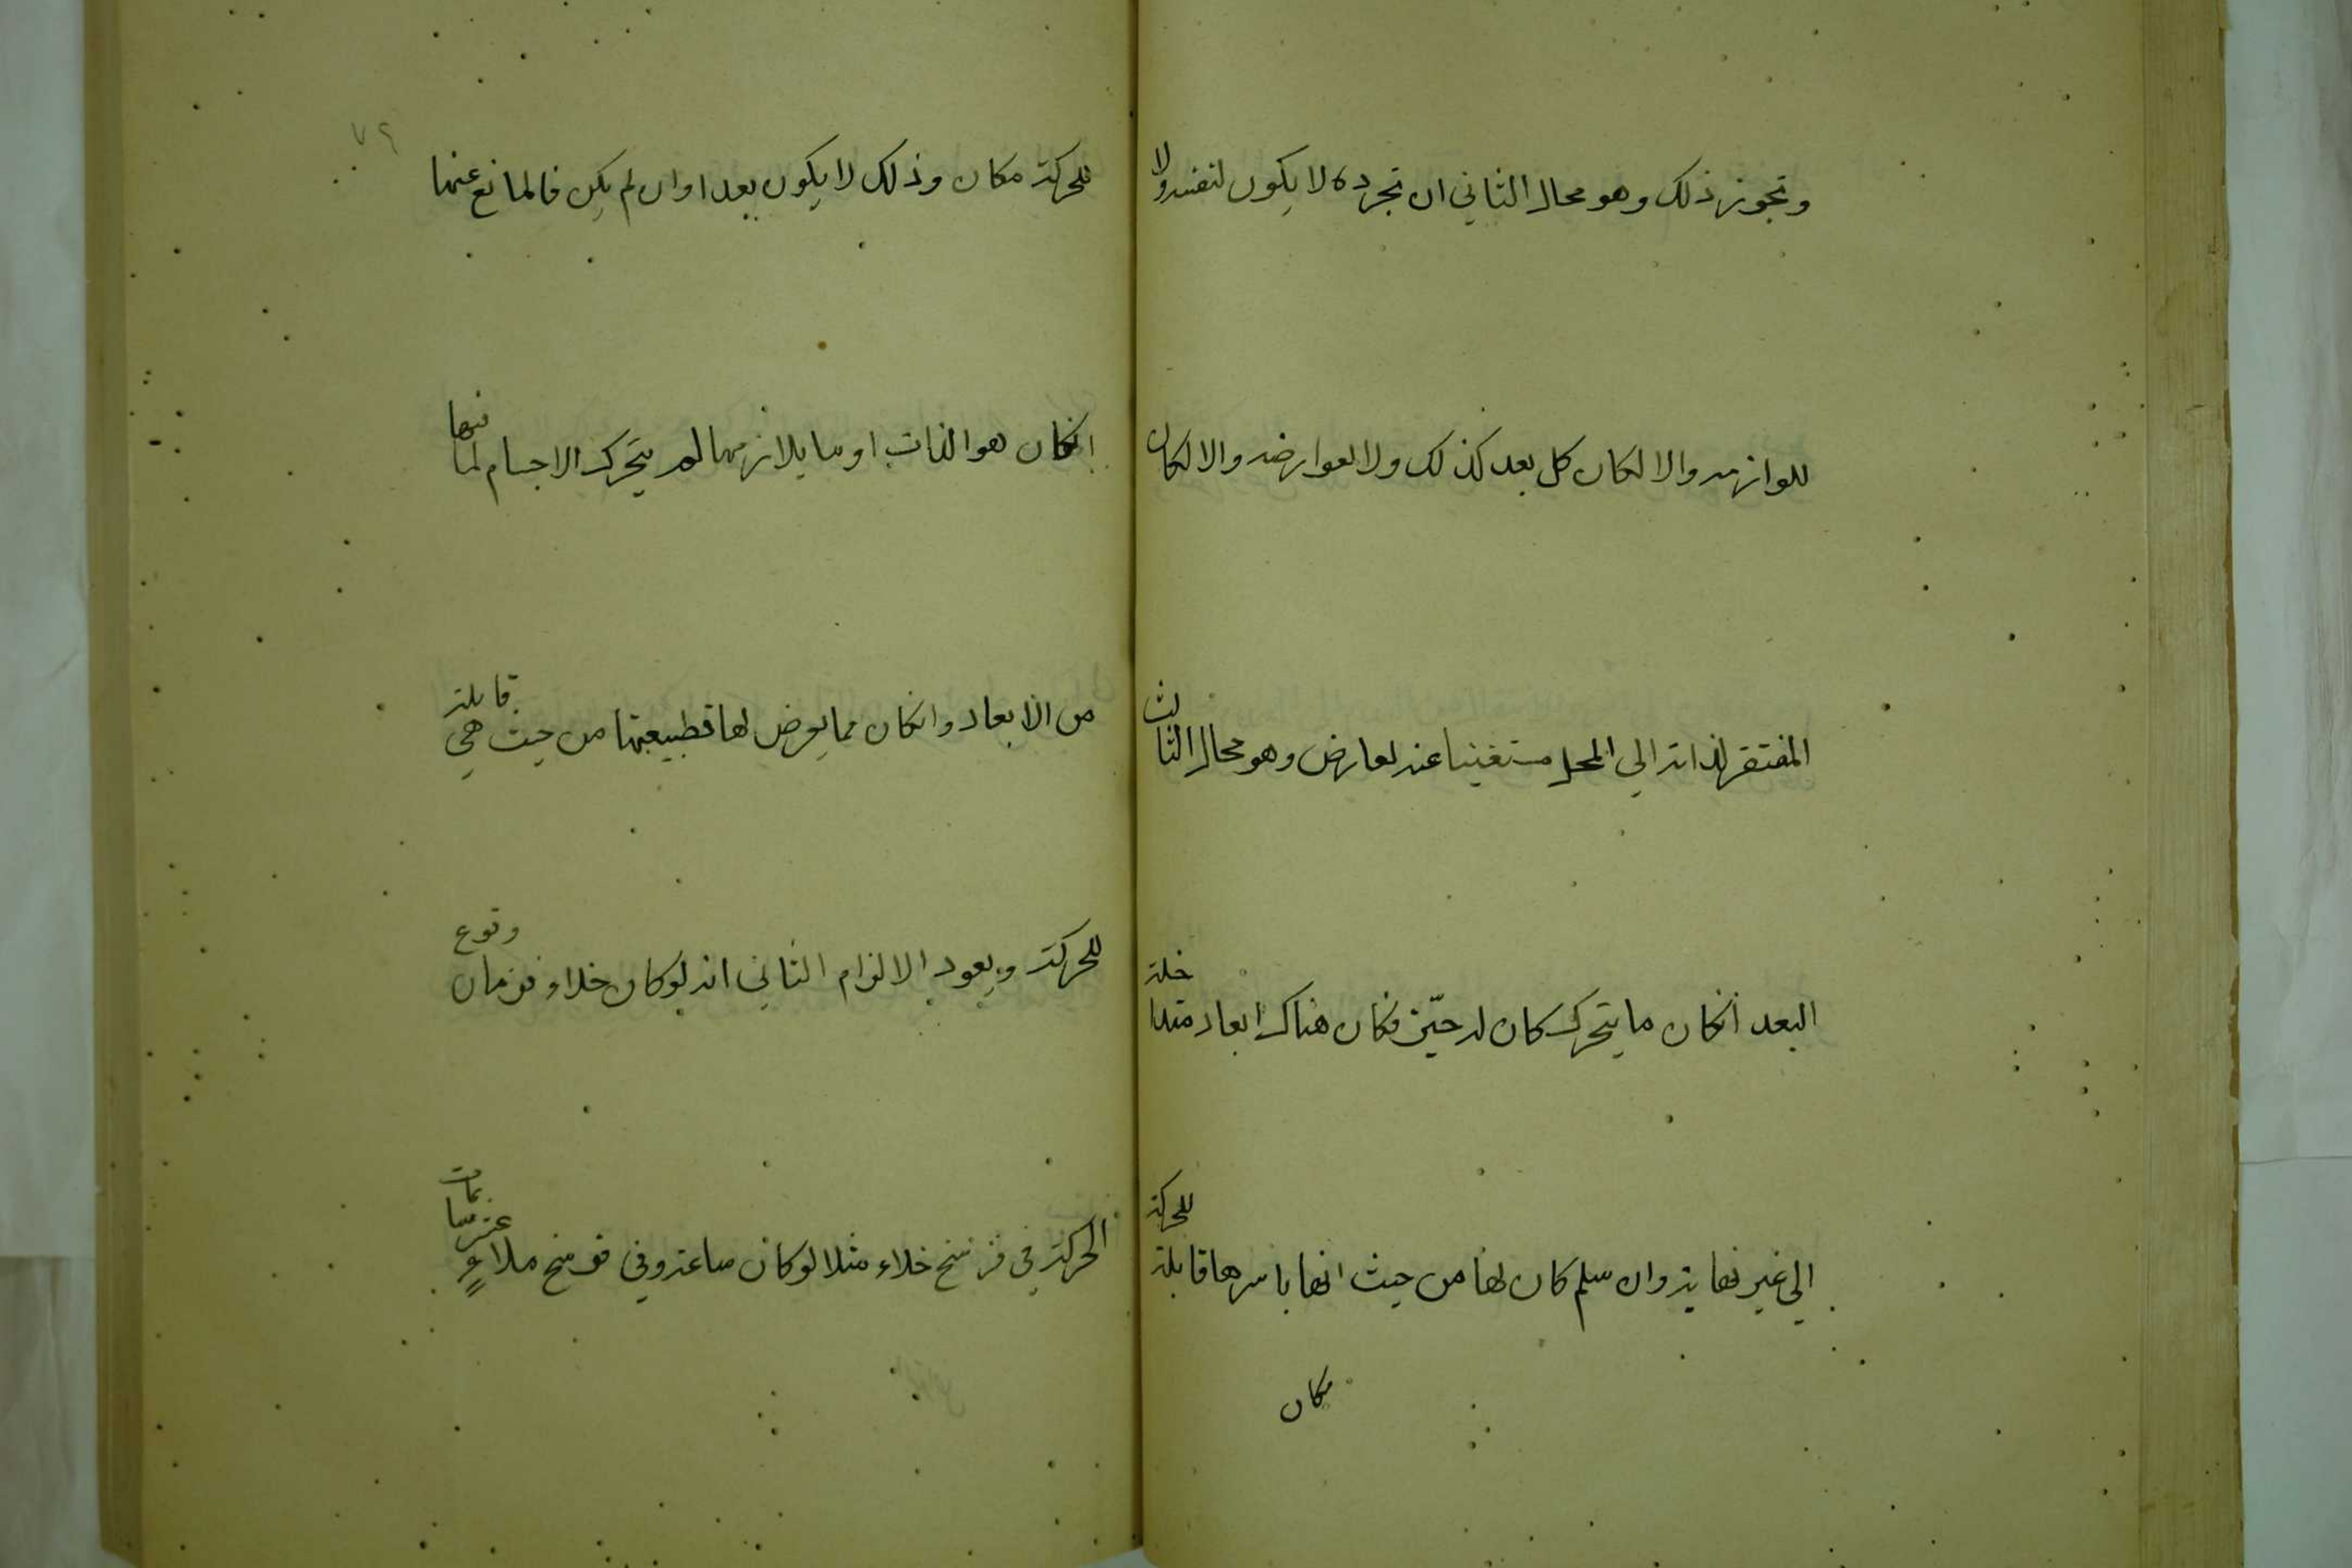 وتجوز ذلك وهو محال الثاني ان تجرده لا يكون لنفسه ولا
للوازمه والا لكان كل بعد كذلك ولا لعوارضه والا لكان
المفتقر لذاته الي المحل مستغنيا عنه لعارض وهو محال الثالث
البعد انكان ما يتحرك كان له حيّز فكان هناك ابعاد متداخلة
الي غير نهاية وان سلم كان لها من حيث انها باسرها قابلة للحركة
مكان
للحركة مكان وذلك لا يكون بعدا وان لم يكن فالمانع عنها
انكان هو الذات او ما يلازمها لم يتحرك الاجسام لما فيها
من الابعاد وانكان مما يعرض لها فطبيعتها من حيث هي قابلة
للحركة ويعود الالزام الثاني انه لو كان خلاء فزمان وقوع
الحركة في فرسخ خلاء مثلا لو كان ساعة وفي فرسخ ملاء عشر ساعات